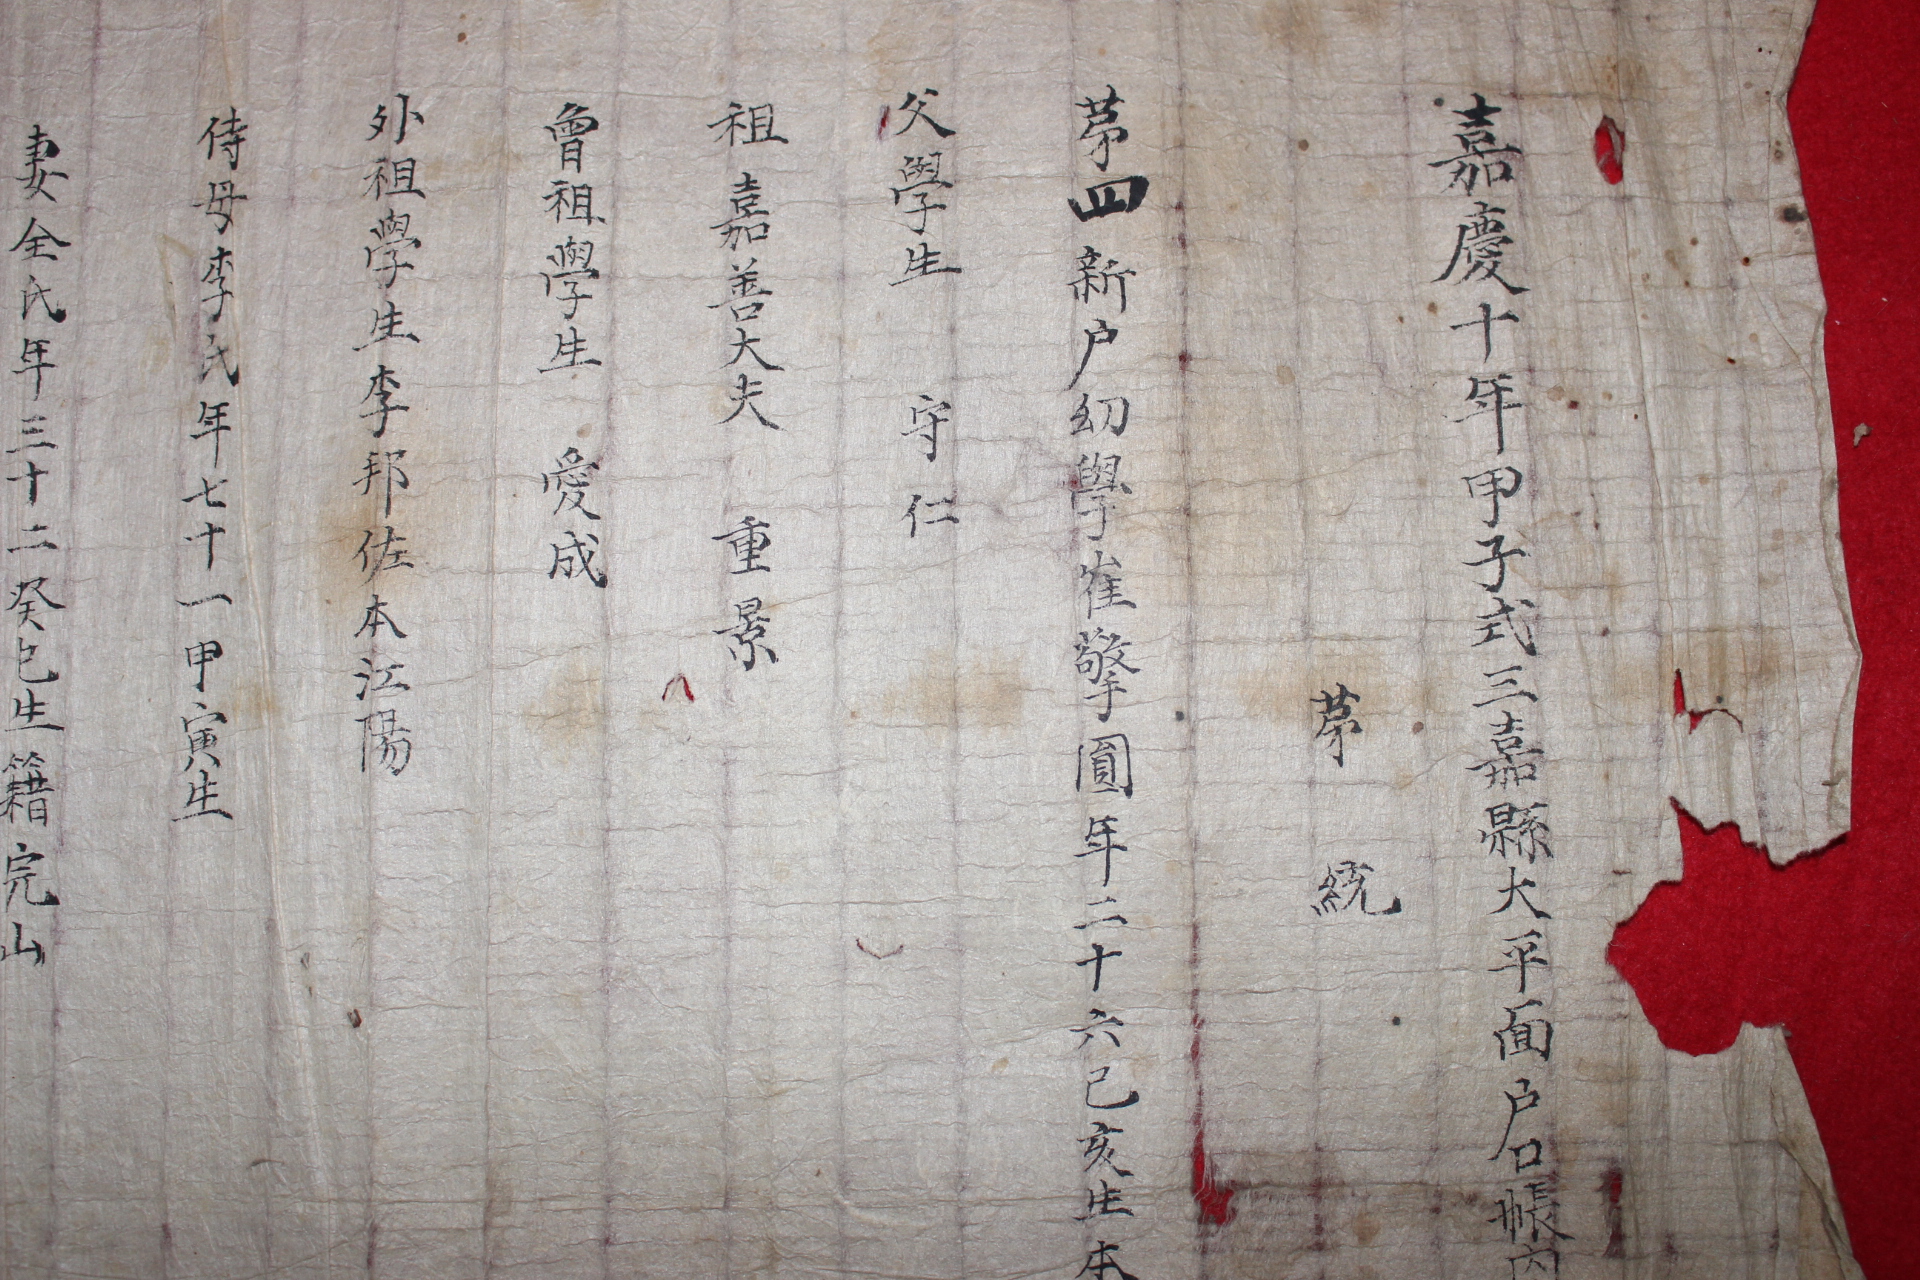 嘉慶十年甲子式三嘉縣大平面户口帳內
苐　統
苐四新户幼學崔擎圓年二十六己亥生本
父學生　守仁
祖嘉善大夫　重景
曾祖學生　愛成
外祖學生李邦佐本江陽
侍母李氏年七十一甲寅生
妻全氏年三十二癸巳生籍完山